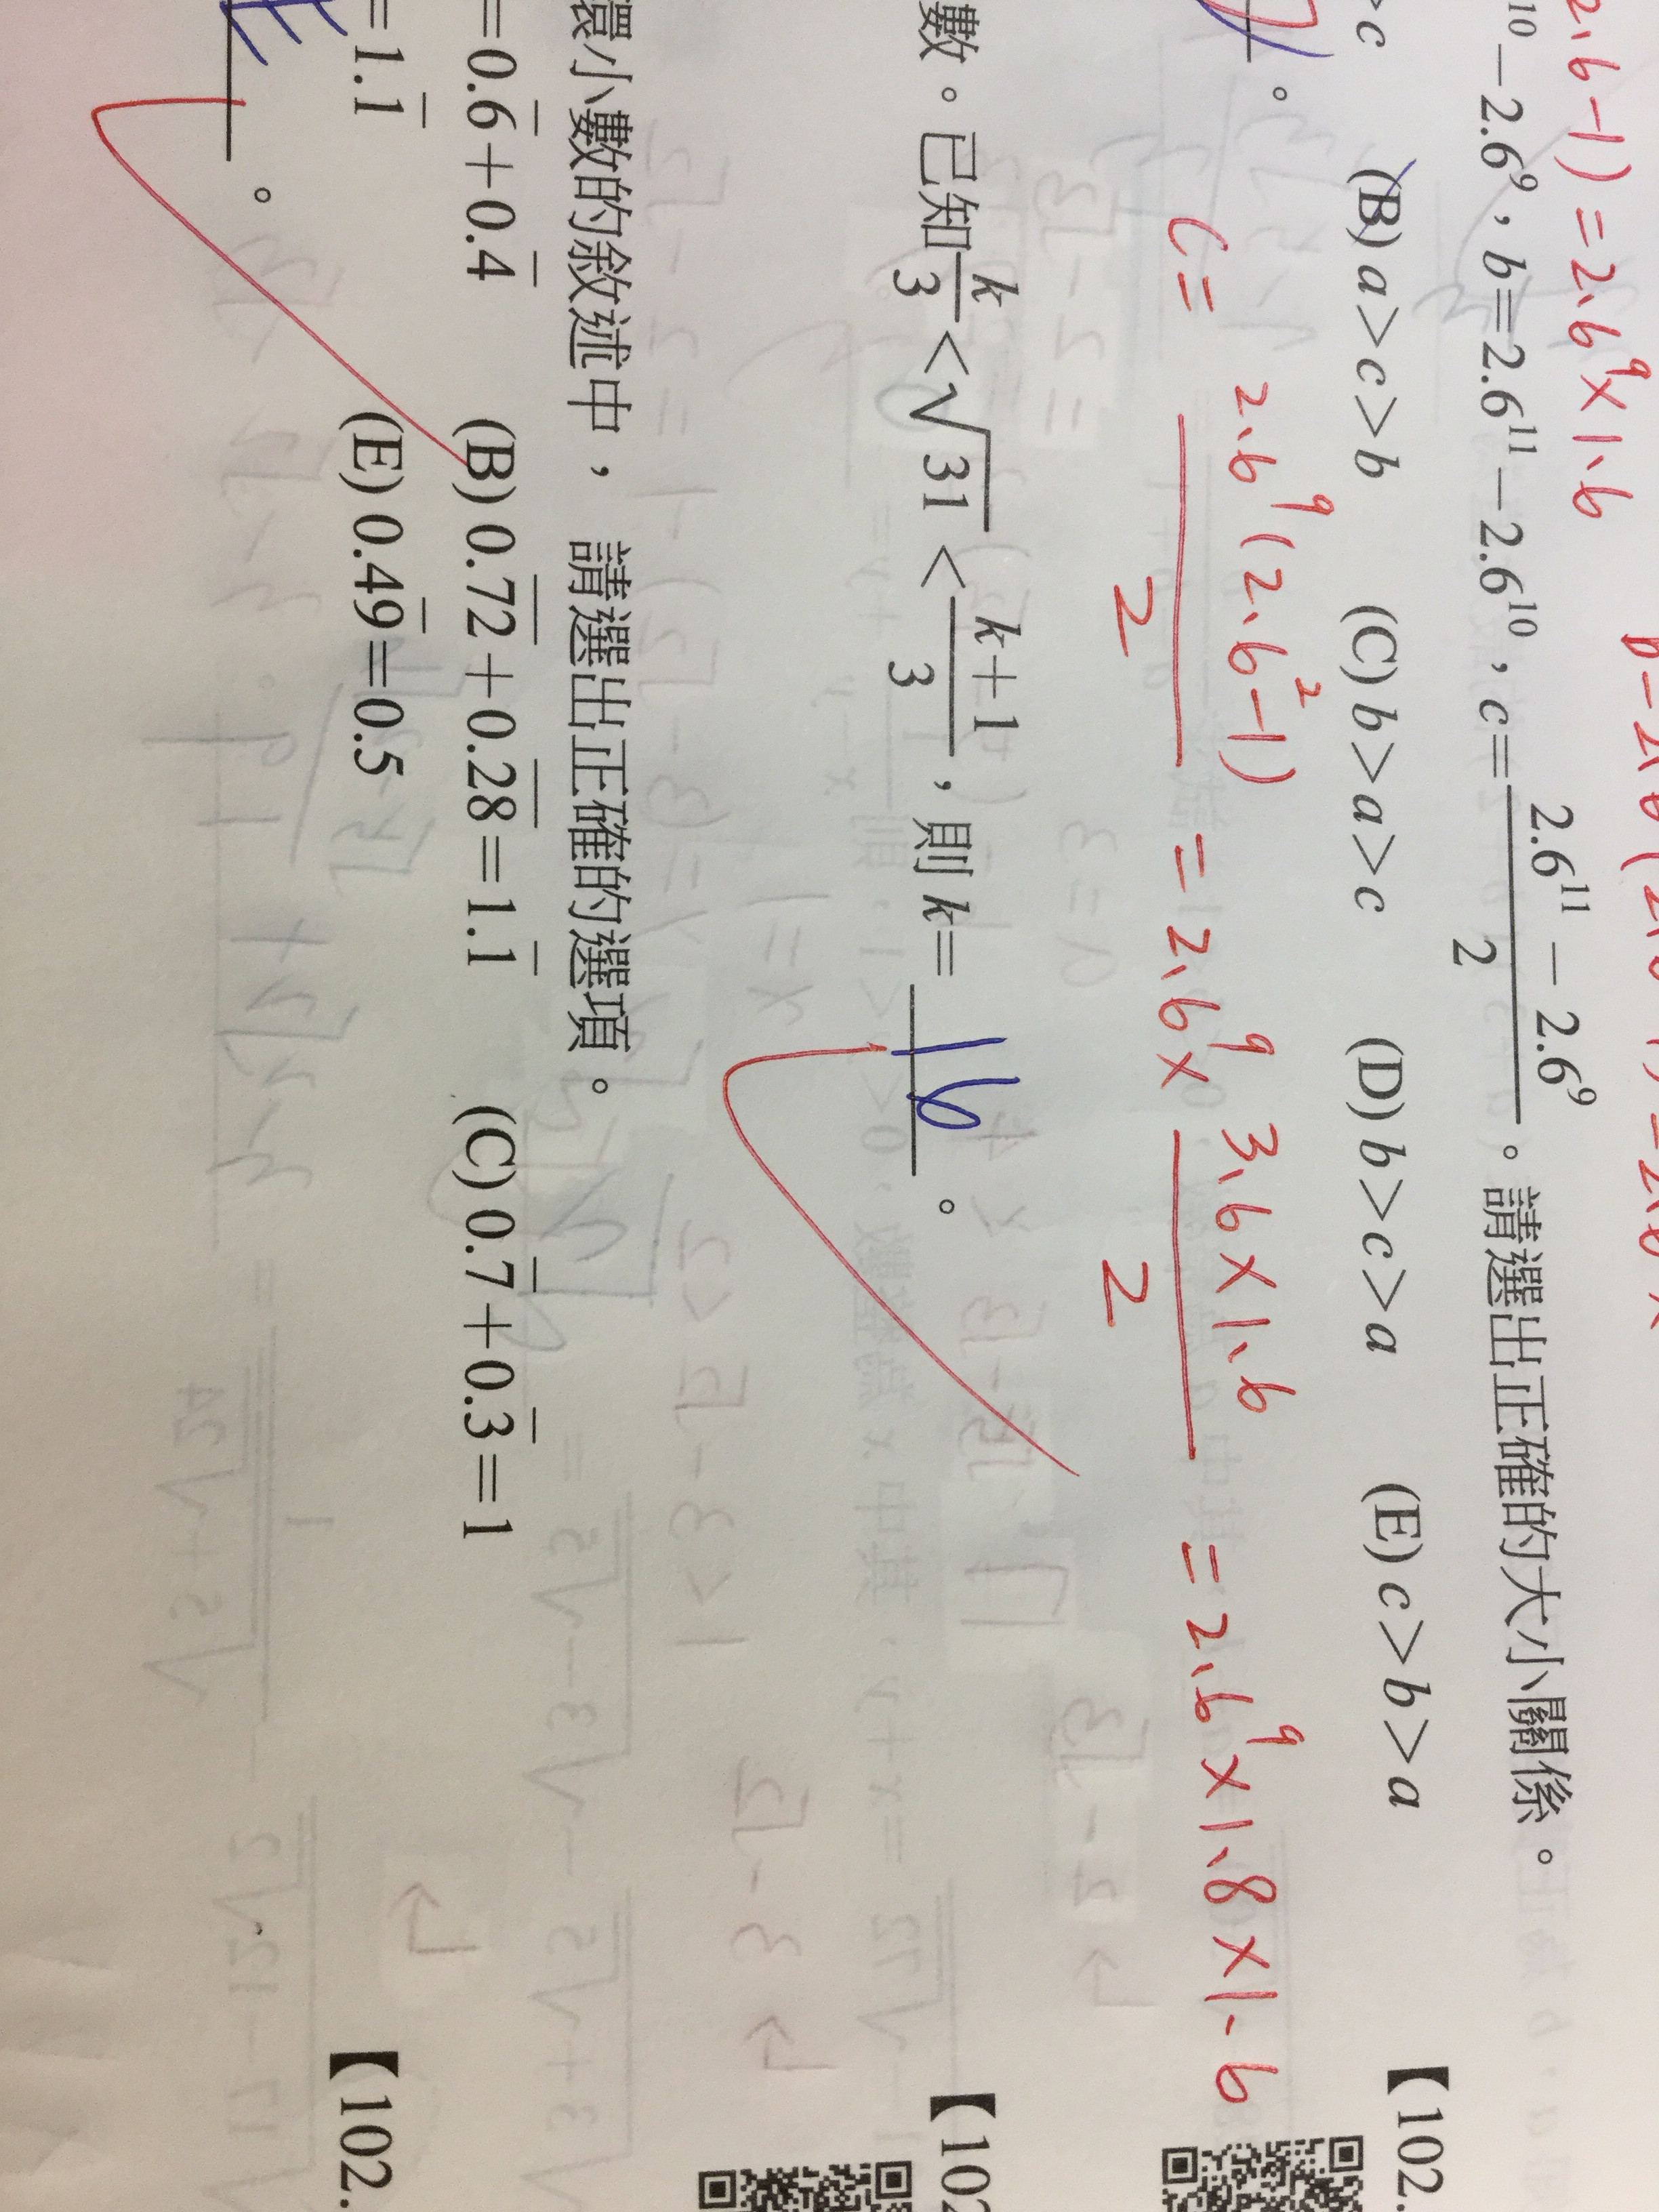 2.6-1) = 2.6⁹×1.6
¹⁰−2.6⁹，b=2.6¹¹−2.6¹⁰，c=(2.6¹¹−2.6⁹)/2。請選出正確的大小關係。
>c (B) a>c>b (C) b>a>c (D) b>c>a (E) c>b>a
【102.
。
c = 2.6⁹(2.6²-1)/2 = 2.6⁹× 3.6×1.6/2 = 2.6⁹×1.8×1.6
數。已知 k/3<√31<(k+1)/3，則 k= 16 。
【102
環小數的敘述中，請選出正確的選項。
=0.6̅+0.4̅ (B) 0.7̅2̅+0.2̅8̅=1.1̅ (C) 0.7̅+0.3̅=1
=1.1̅ (E) 0.49̅=0.5
【102.
E 。